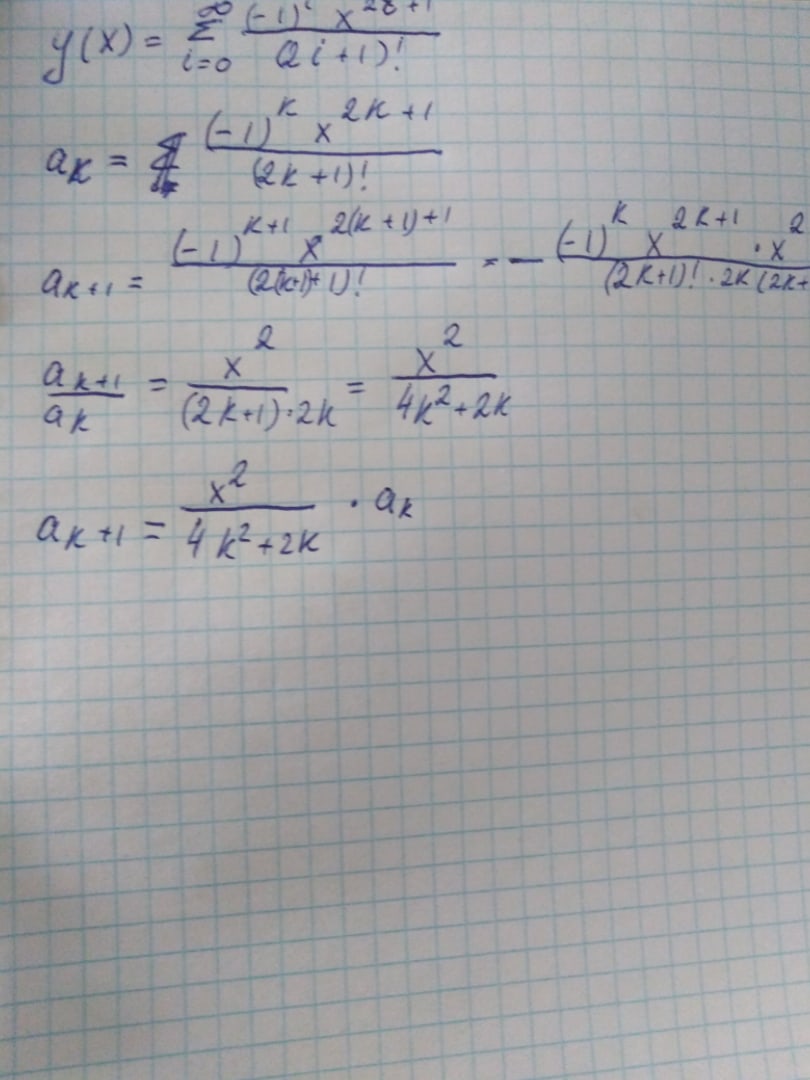 y(x) = ∞ Σ i=0 (-1)^i x^(2i+1) / (2i+1)!
a_k = (-1)^k x^(2k+1) / (2k+1)!
a_(k+1) = (-1)^(k+1) x^(2(k+1)+1) / (2(k+1)+1)! = - (-1)^k x^(2k+1) · x^2 / (2k+1)! · 2k (2k+
a_(k+1) / a_k = x^2 / (2k+1)·2k = x^2 / 4k^2+2k
a_(k+1) = x^2 / 4k^2+2k · a_k